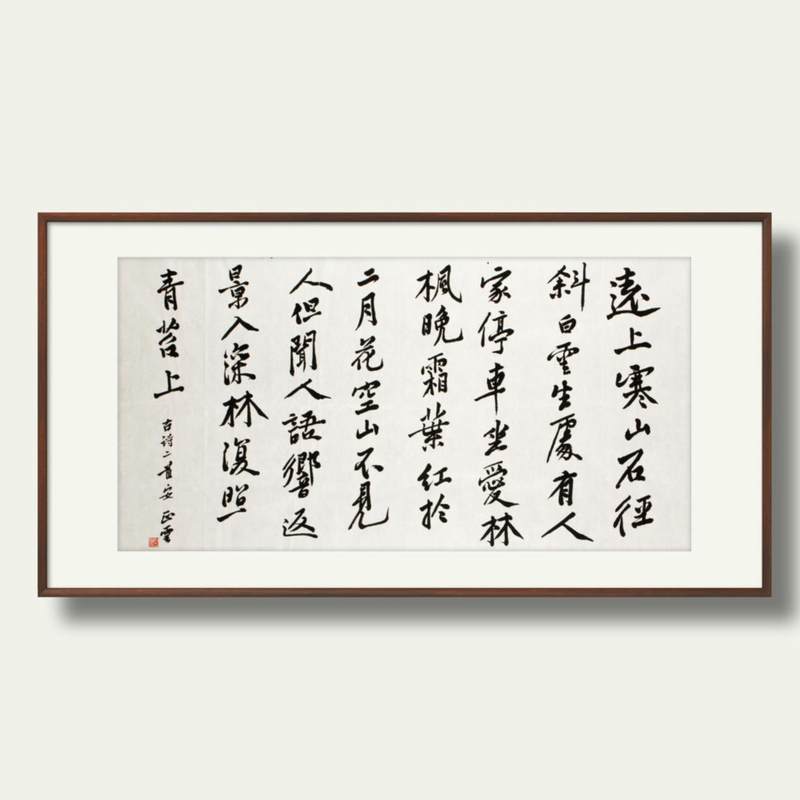 遠上寒山石徑
斜白雲生處有人
家停車坐愛林
楓晚霜葉紅於
二月花空山不見
人但聞人語響返
景入深林復照
青苔上
古詩二首安正雲